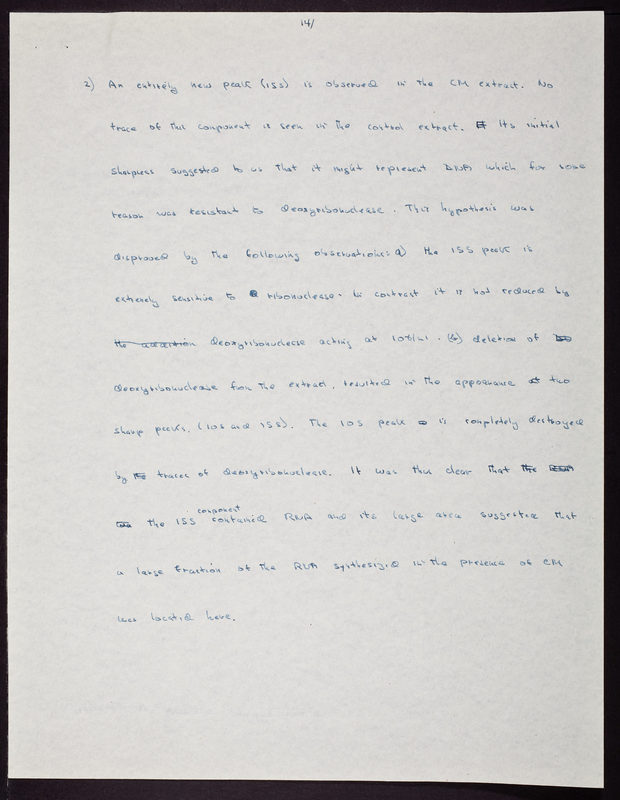 14/
2) An entirely new peak (15S) is observed in the CM extract. No
trace of this component is seen in the control extract. Its initial
sharpness suggested to us that it might represent DNA which for some
reason was resistant to deoxyribonuclease. This hypothesis was
disproved by the following observations: a) the 15S peak is
extremely sensitive to ribonuclease. In contrast it is not reduced by
the addition deoxyribonuclease acting at 10γ/ml. (b) deletion of
deoxyribonuclease from the extract, resulted in the appearance of two
sharp peaks, (10S and 15S). The 10S peak is completely destroyed
by traces of deoxyribonuclease. It was thus clear that the
component
the 15S contained RNA and its large area suggested that
a large fraction of the RNA synthesized in the presence of CM
was located here.